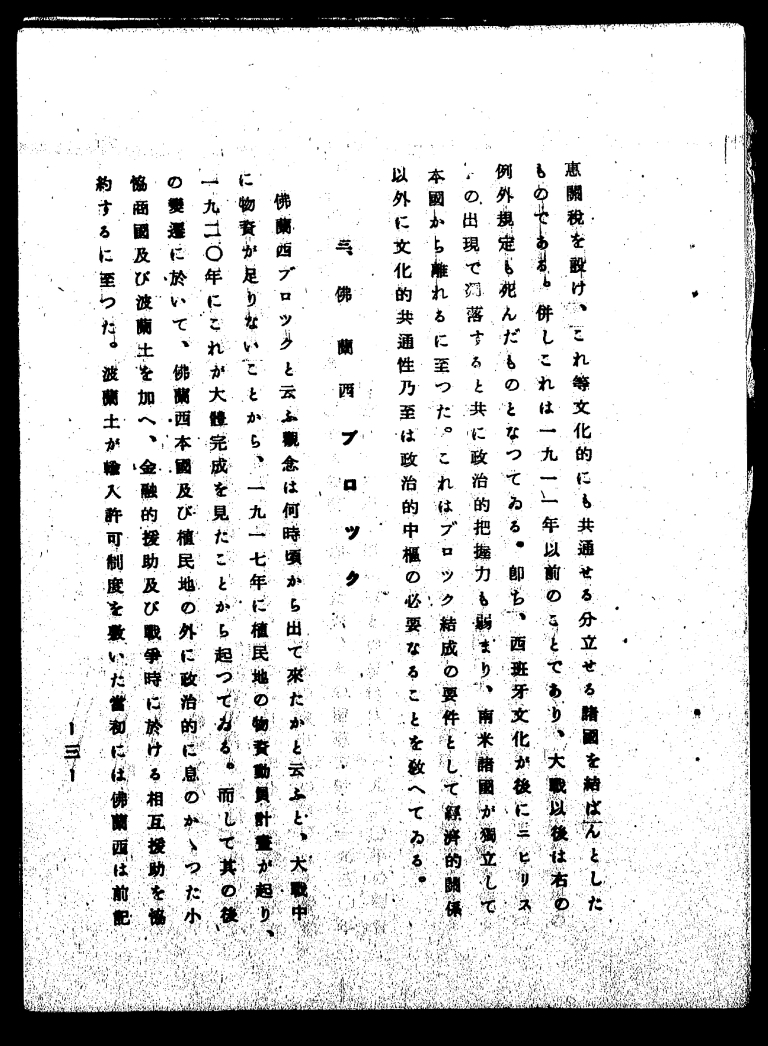 惠關稅を設け、これ等文化的にも共通せる分立せる諸國を結ばんとした
ものである。併しこれは一九一一年以前のことであり、大戰以後は右の
例外規定も死んだものとなつてゐる。卽ち、西班牙文化が後にニヒリス
の出現で落すると共に政治的把握力も弱まり、南米諸國が獨立して
本國から離れるに至つた。これはブロツク結成の要件として經濟的關係
以外に文化的共通性乃至は政治的中樞の必要なることを敎へてゐる。
三、佛蘭西ブロツク
佛蘭西ブロツクと云ふ觀念は何時頃から出て來たかと云ふと、大戰中
に物資が足りないことから、一九一七年に植民地の物資動員計畫が起り、
一九二〇年にこれが大體完成を見たことから起つてゐる。而して其の後
の變遷に於いて、佛蘭西本國及び植民地の外に政治的に息のかゝつた小
協商國及び波蘭土を加へ、金融的援助及び戰爭時に於ける相互援助を協
約するに至つた。波蘭土が輸入許可制度を敷いた當初には佛蘭西は前記
ー三ー